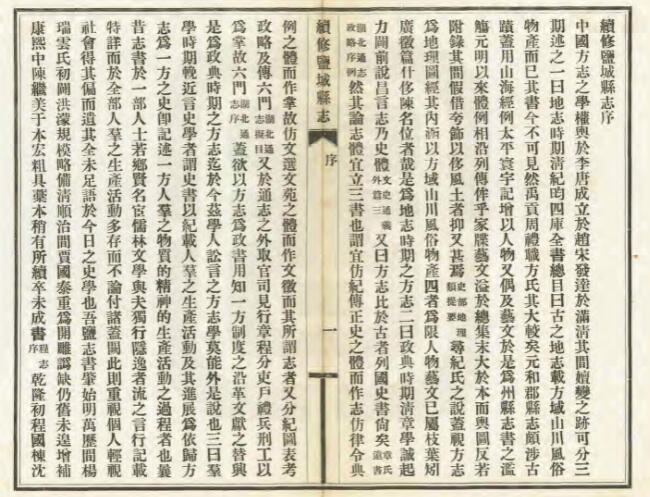 續修鹽城縣志序
中國方志之學權輿於李唐成立於趙宋發達於滿淸其間嬗變之跡可分三
期述之一曰地志時期清紀昀四庫全書總目曰古之地志載方域山川風俗
物產而已其書今不可見然禹貢周禮職方氏其大較矣元和郡縣志頗涉古
蹟蓋用山海經例太平寰宇記增以人物又偶及藝文於是爲州縣志書之濫
觴元明以來體例相沿列傳侔乎家牒藝文溢於總集末大於本而輿圖反若
附錄其間假借夸飾以侈風土者抑又甚焉史部地理類提要尋紀氏之說蓋視方志
爲地理圖經其內涵以方域山川風俗物產四者爲限人物藝文已屬枝葉矧
廣徵篇什侈陳名位者哉是爲地志時期之方志二曰政典時期清章學誠起
力闢前說昌言志乃史體文史通義外篇三又曰方志比於古者列國史書尙矣章氏遺書
湖北通志政略序例然其論志體宜立三書也謂宜仿紀傳正史之體而作志仿律令典
例之體而作掌故仿文選文苑之體而作文徵而其所謂志者又分紀圖表考
政略及傳六門湖北通志擬目又於通志之外取官司見行章程分吏戶禮兵刑工以
爲掌故六門湖北通志序蓋欲以方志爲政書用知一方制度之沿革文獻之替興
是爲政典時期之方志迄於今茲學人訟言之方志學莫能外是說也三曰羣
學時期輓近言史學者謂史書以紀載人羣之生產活動及其進展爲依歸方
志爲一方之史卽記述一方人羣之物質的精神的生產活動之過程者也曩
昔志書於一部人士若鄉賢名宦儒林文學與夫獨行隱逸者流之言行記載
特詳而於全部人羣之生產活動多存而不論付諸蓋闕此則重視個人輕視
社會得其偏而遺其全未足語於今日之史學也吾鹽志書肇始明萬歷間楊
瑞雲氏初闢洪濛規模略備清順治間賈國泰重爲開雕譌缺仍舊未遑增補
康熙中陳繼美于本宏粗具藁本稍有所續卒未成書程志序乾隆初程國棟沈
續修鹽城縣志
序
一